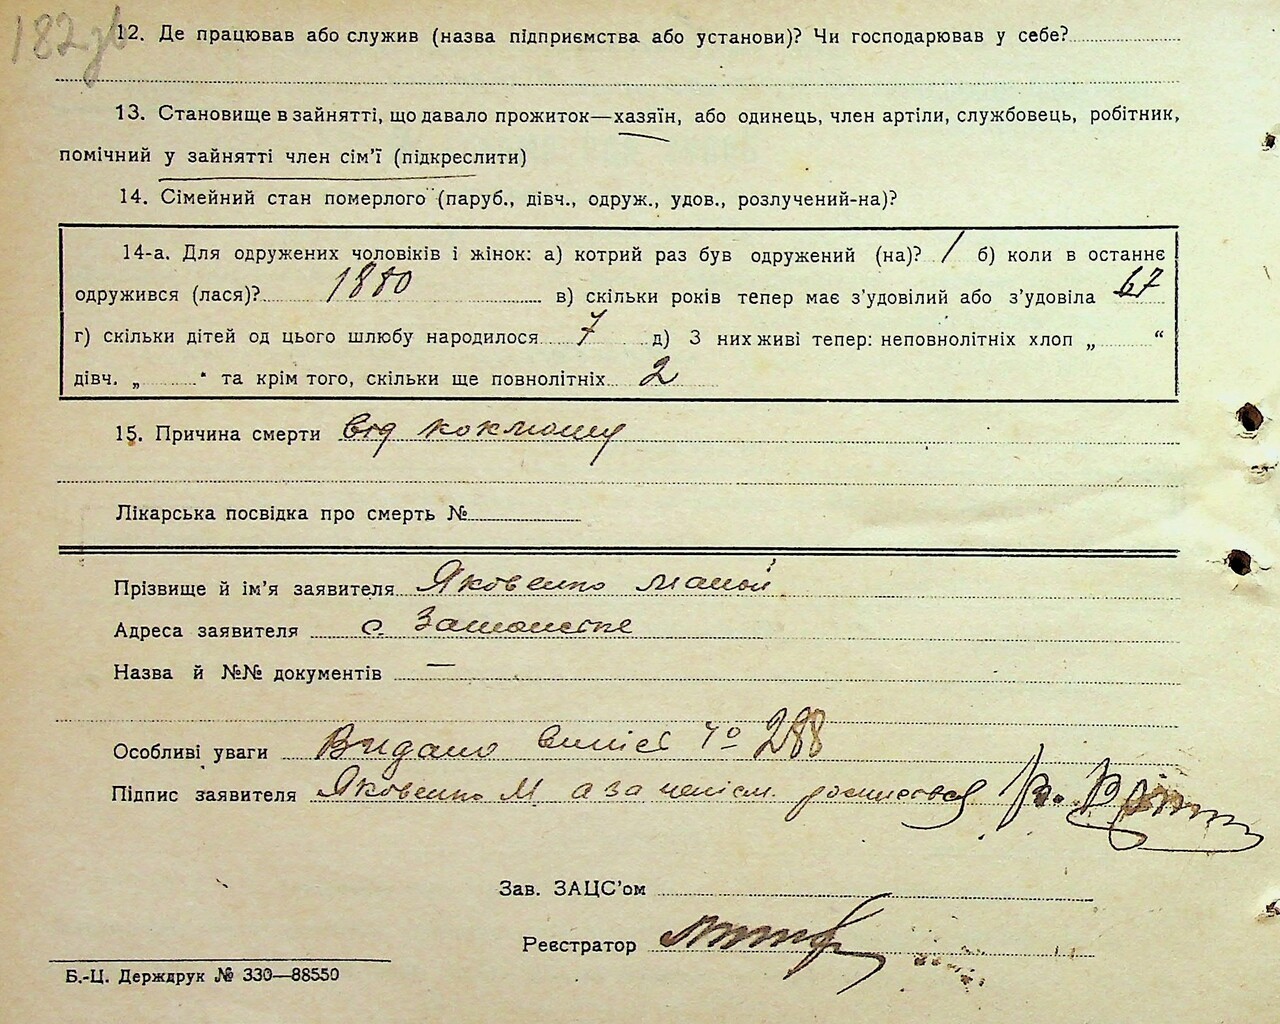 182 зв
12. Де працював або служив (назва підприємства або установи)? Чи господарював у себе?
13. Становище в зайнятті, що давало прожиток—хазяїн, або одинець, член артіли, службовець, робітник,
помічний у зайнятті член сім'ї (підкреслити)
14. Сімейний стан померлого (паруб., дівч., одруж., удов., розлучений-на)?
14-а. Для одружених чоловіків і жінок: а) котрий раз був одружений (на)? 1 б) коли в останнє
одружився (лася)? 1880 в) скільки років тепер має з'удовілий або з'удовіла 67
г) скільки дітей од цього шлюбу народилося 7 д) З них живі тепер: неповнолітніх хлоп „ “
дівч. „ “ та крім того, скільки ще повнолітніх 2
15. Причина смерти від коклюшу
Лікарська посвідка про смерть №
Прізвище й ім'я заявителя Яковенко
Адреса заявителя с.
Назва й №№ документів —
Особливі уваги Видано випис № 288
Підпис заявителя Яковенко М а за
Зав. ЗАЦС'ом
Реєстратор
Б.-Ц. Держдрук № 330—88550